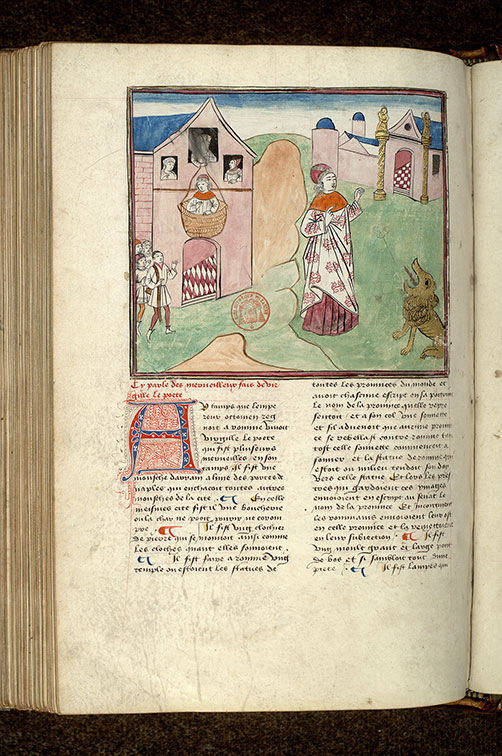 Cy parle des merveilleux fais de vir
gille le poete
Au temps que lempe
reur octovien reg
noit a romme vivoit
Virgille le poete
qui fist plusieurs
merveilles en son
temps. Il fist une
mousche darain a lune des portes de
naples qui enchacoit toutes autres
mousches de la cite. En celle
meismes cite fist il une boucherie
ou la char ne povoit
Il fist ung clochier
de pierre qui se mouvoit ainsi comme
les cloches quant elles sonnoient.
Il fist faire a romme ung
temple ou estoient les statues de
toutes les provinces du monde et
avoit chascune escript en sa poitrine
le nom de la province quelle repre
sentoit. et a son col une sonnette
et sil advenoit que aucune provin
ce se rebellast contre romme tan
tost celle sonnette commencoit a
sonner et la statue de romme qui
estoit ou milieu tendoit son doy
vers celle statue. Et lors les pres
tres qui gardoient ces ymages
envoioient en escript au senat le
nom de la province. Et incontinent
les rommains envoioient leur ost
en celle province et la remettoient
en leur subiection. Il fist
ung moult grant et large pont
de bos et si sambloit tout dune
piece. Il fist lampes qui